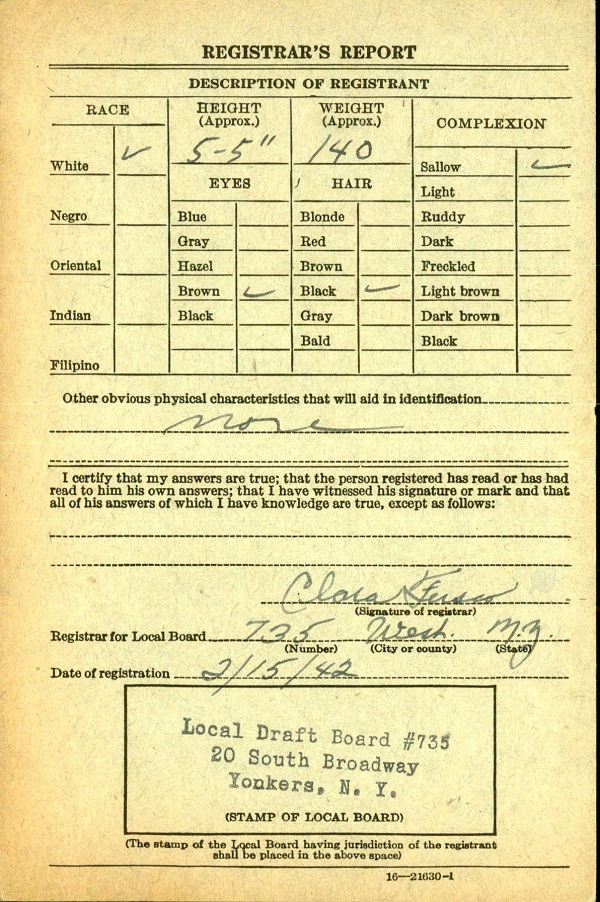 REGISTRAR'S REPORT
DESCRIPTION OF REGISTRANT
RACE
HEIGHT
(Approx.)
WEIGHT
(Approx.)
COMPLEXION
White ✓
5-5"
140
Sallow ✓
EYES
HAIR
Light
Negro
Blue
Blonde
Ruddy
Gray
Red
Dark
Oriental
Hazel
Brown
Freckled
Brown ✓
Black ✓
Light brown
Indian
Black
Gray
Dark brown
Bald
Black
Filipino
Other obvious physical characteristics that will aid in identification
none
I certify that my answers are true; that the person registered has read or has had
read to him his own answers; that I have witnessed his signature or mark and that
all of his answers of which I have knowledge are true, except as follows:
Clara
(Signature of registrar)
Registrar for Local Board 735 West. N.Y.
(Number) (City or county) (State)
Date of registration 2/15/42
Local Draft Board #735
20 South Broadway
Yonkers, N. Y.
(STAMP OF LOCAL BOARD)
(The stamp of the Local Board having jurisdiction of the registrant
shall be placed in the above space)
16—21630-1